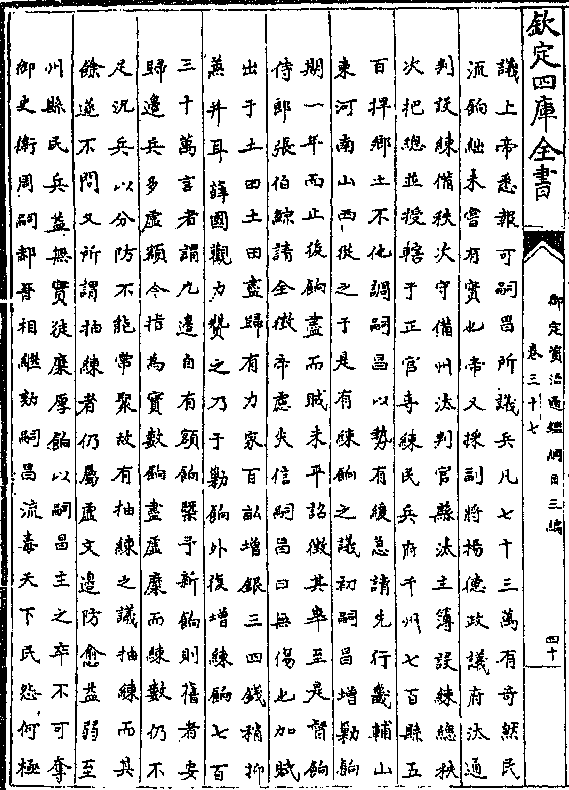 欽定四庫全書
御定資治通鑑綱目三編
卷三十七
四十
議上帝悉報可嗣昌所議兵凡七十三萬有奇然民
流餉絀未嘗有實也帝又採副將楊德政議府汰通
判設練備秩次守備州汰判官縣汰主簿設練總秩
次把總並授轄于正官專練民兵府千州七百縣五
百捍鄉土不他調嗣昌以勢有緩急請先行畿輔山
東河南山西從之于是有練餉之議初嗣昌增勦餉
期一年而止後餉盡而賊未平詔徵其半至是督餉
侍郎張伯鯨請全徵帝慮失信嗣昌曰無傷也加賦
出于土田土田盡歸有力家百畝增銀三四錢稍抑
蒹并耳薛國觀力贊之乃于勦餉外復增練餉七百
三十萬言者謂九邊自有額餉槩予新餉則舊者安
歸邊兵多虛額今指為實數餉盡虛糜而練數仍不
足況兵以分防不能常聚故有抽練之議抽練而其
餘遂不問又所謂抽練者仍屬虛文邊防愈益弱至
州縣民兵益無實徒糜厚餉以嗣昌主之卒不可奪
御史衛周嗣郝晉相繼劾嗣昌流毒天下民怨何極